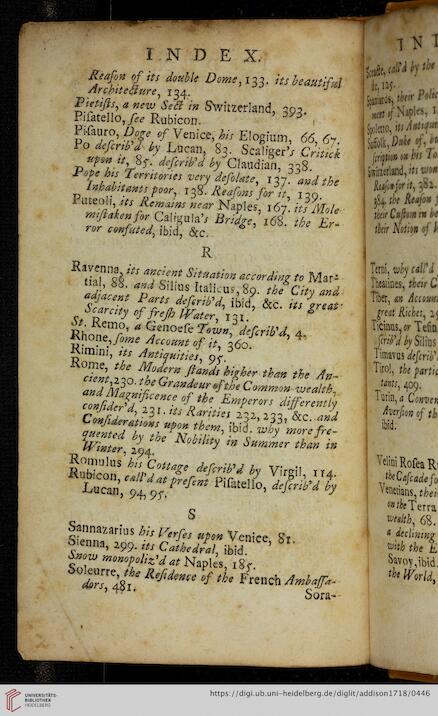 INDEX.
Reaſon of its double Dome, 133. its beautiful
Architecture, 134.
Pietiſts, a new Sect in Switzerland, 393.
Piſatello, ſee Rubicon.
Piſauro, Doge of Venice, his Elogium, 66, 67.
Po deſcrib'd by Lucan, 83. Scaliger's Critick
upon it, 85. deſcrib'd by Claudian, 338.
Pope his Territories very deſolate, 137. and the
Inhabitants poor, 138. Reaſons for it, 139.
Puteoli, its Remains near Naples, 167. its Mole
miſtaken for Caligula's Bridge, 168. the Er-
ror confuted, ibid, &c.
R
Ravenna, its ancient Situation according to Mar-
tial, 88. and Silius Italicus, 89. the City and
adjacent Parts deſcrib'd, ibid, &c. its great
Scarcity of freſh Water, 131.
St. Remo, a Genoeſe Town, deſcrib'd, 4.
Rhone, ſome Account of it, 360.
Rimini, its Antiquities, 95.
Rome, the Modern ſtands higher than the An-
cient, 230. the Grandeur of the Common-wealth,
and Magnificence of the Emperors differently
conſider'd, 231. its Rarities 232, 233, &c. and
Conſiderations upon them, ibid. why more fre-
quented by the Nobility in Summer than in
Winter, 294.
Romulus his Cottage deſcrib'd by Virgil, 114.
Rubicon, call'd at preſent Piſatello, deſcrib'd by
Lucan, 94, 95.
S
Sannazarius his Verſes upon Venice, 81.
Sienna, 299. its Cathedral, ibid.
Snow monopoliz'd at Naples, 185.
Soleurre, the Reſidence of the French Ambaſſa-
dors, 481.
Sora-
IN
call'd by the
125.
their Polic
ment of Naples, 1
its Antiqui
Suffolk, Duke of,
ſcription on his To
Switzerland, its won
Reaſon for it, 382.
384. the Reaſon
their Cuſtom in be
their Notion of
Terni, why call'd
Theatines, their C
Tiber, an Account
great Riches, 2
Ticinus, or Teſin
ſcrib'd by Silius
Timavus deſcrib'
Tirol, the partic
tants, 409.
Turin, a Conven
Averſion of th
ibid.
Velini Roſea R
the Caſcade
Venetians, thei
on the Terra
wealth, 68.
a declining
with the E
Savoy, ibid.
the World,
UNIVERSITÄTS-
BIBLIOTHEK
HEIDELBERG
https://digi.ub.uni-heidelberg.de/diglit/addison1718/0446